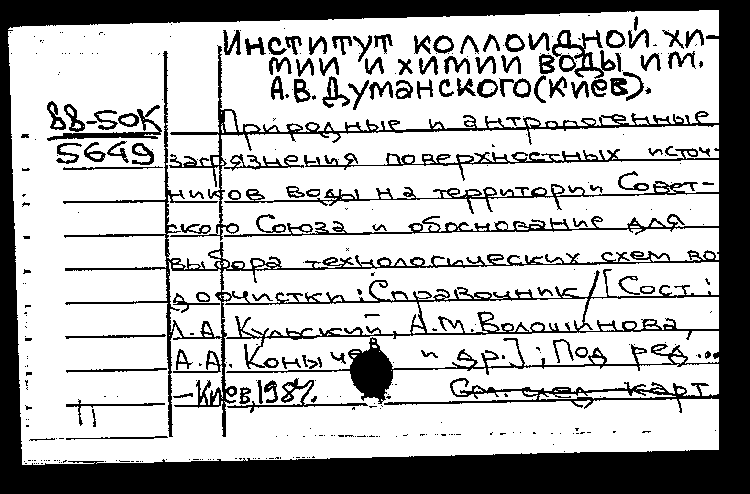 Институт коллоидной хи-
мии и химии воды им.
А.В. Думанского (Киев).
88-50К
5649
Природные и антропогенные
загрязнения поверхностных источ-
ников воды на территории Совет-
ского Союза и обоснование для
выбора технологических схем во-
доочистки: Справочник / [Сост.:
Л.А. Кульский, А.М. Волошинова,
А.А. Конычев и др.]; Под ред. ...
— Киев, 1987.
См. след. карт.
П